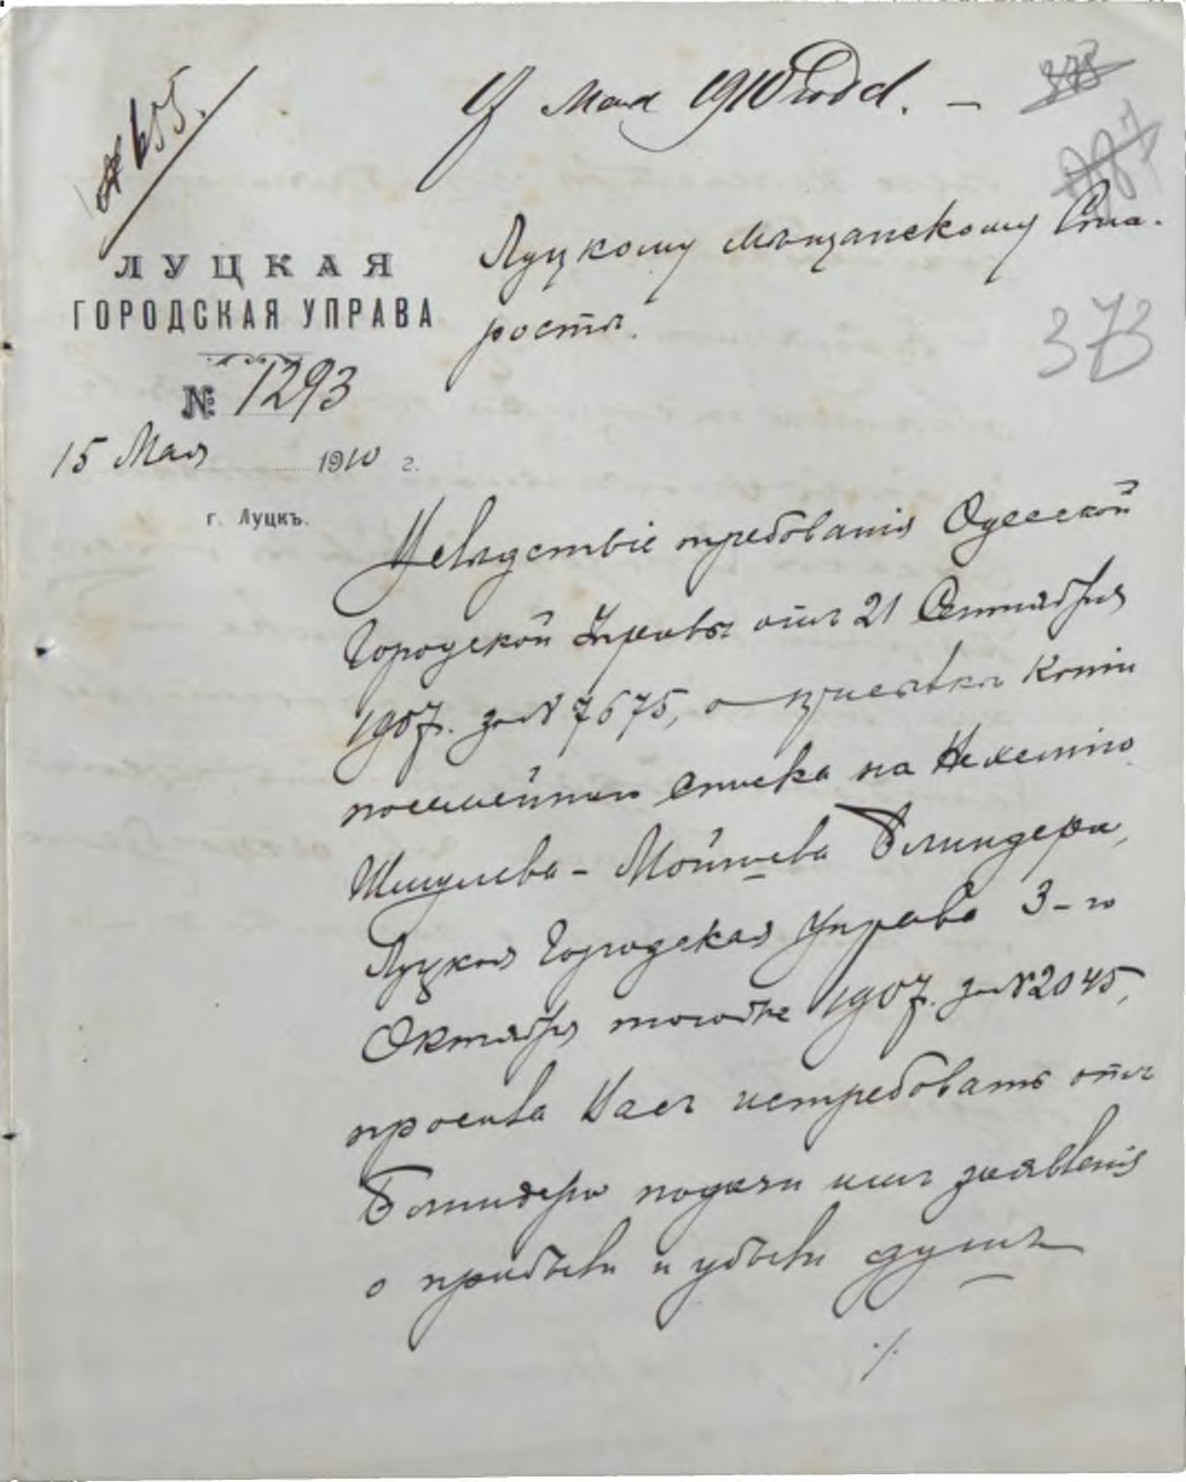 № 655.
Мая 1910 года. —
373
Луцкому Мѣщанскому Ста-
ростѣ.
373
ЛУЦКАЯ
ГОРОДСКАЯ УПРАВА
№ 1293
15 Мая 1910 г.
г. Луцкъ.
Вслѣдствіе требованія Одесской
Городской Управы отъ 21 Сентября
1907 г. за № 7675, о высылкѣ копіи
посемейнаго списка на
Шмулева-Мойшева Блиндера,
Луцкая Городская Управа 3-го
Октября того же 1907 г. за № 2045,
просила Васъ истребовать отъ
Блиндера подачи имъ заявленія
о прибыли и убыли душъ
./.